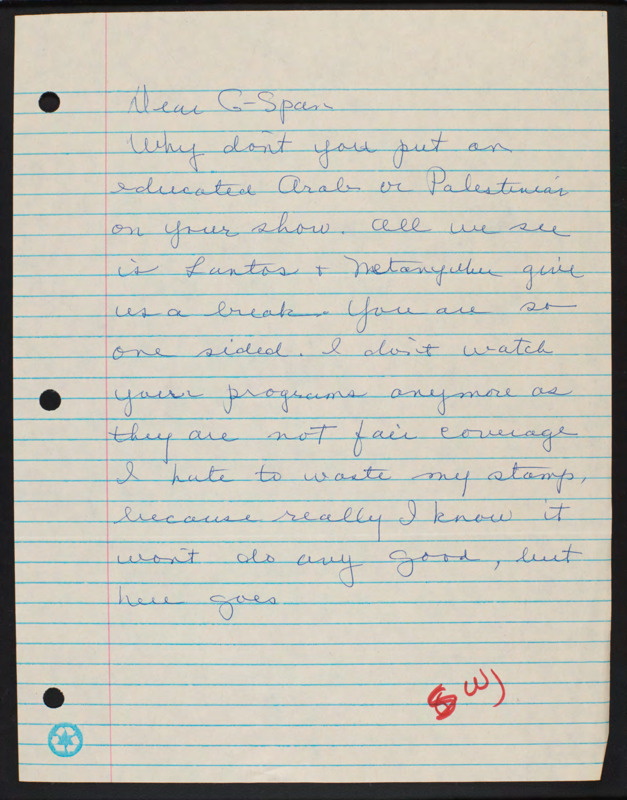 Dear C-Span
Why don't you put an
educated Arab or Palestinian
on your show. All we see
is Lantos + Netanyuhu give
us a break. You are so
one sided. I don't watch
your programs anymore as
they are not fair coverage
I hate to waste my stamp,
because really I know it
won't do any good, but
here goes